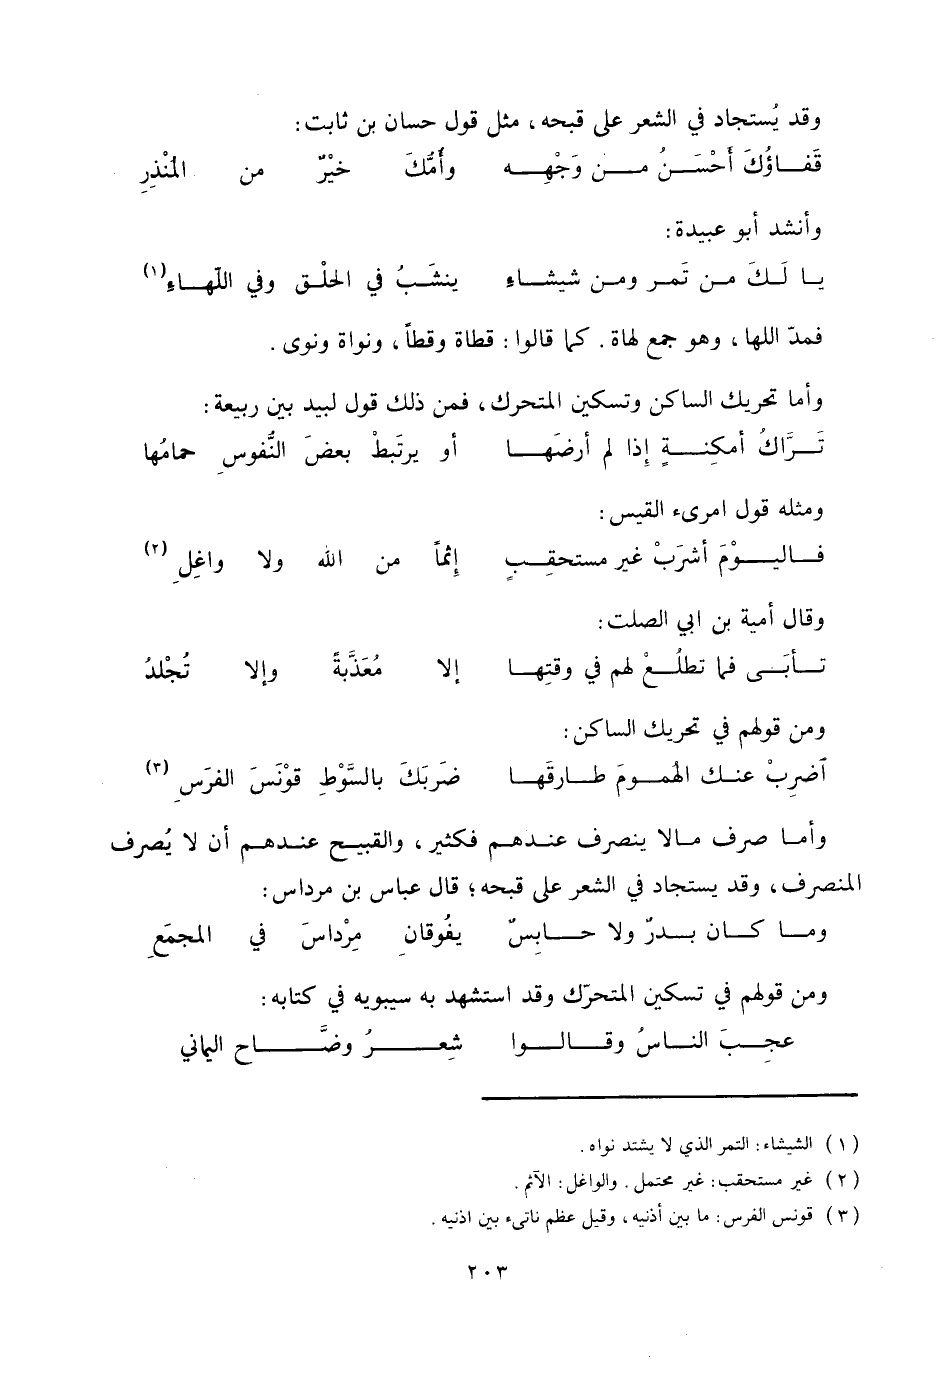 وقد يُستجاد في الشعر على قبحه ، مثل قول حسان بن ثابت :
قَفـاؤُكَ أَحْسَـنُ مـن وَجْهِـه وأُمُّكَ خَيْرٌ من المُنْذِرِ
وأنشد أبو عبيدة :
يـا لَـكَ مـن تَمـر ومـن شيشـاء ينشَـبُ في الحلْـق وفي اللّهـاءِ(١)
فمدّ اللها ، وهو جمع لهاة . كما قالوا : قطاة وقطاً ، ونواة ونوى .
وأما تحريك الساكن وتسكين المتحرك ، فمن ذلك قول لبيد بين ربيعة :
تَـرَّاكُ أمكِنـةٍ إذا لم أرضَهـا أو يرتَبطْ بعضَ النُّفوسِ حمامُها
ومثله قول امرىء القيس :
فـاليـوْمَ أشرَبْ غير مستحقِـبٍ إثماً من الله ولا واغِلِ (٢)
وقال أمية بن ابي الصلت :
تـأبَـى فما تطلُـعْ لهم في وقتِهـا إلا مُعَذَّبةً وإلا تُجْلدُ
ومن قولهم في تحريك الساكن :
اَضرِبْ عنـك الهُمـومَ طـارقَهـا ضَرَبَكَ بالسَّوْطِ قوْنَسَ الفرَسِ (٣)
وأمـا صرف مـالا ينصرف عنـدهـم فكثير ، والقبيـح عنـدهـم أن لا يُصرف
المنصرف ، وقد يستجاد في الشعر على قبحه ؛ قال عباس بن مرداس :
ومـا كـان بـدرٌ ولا حـابِسٌ يفُوقانِ مِرْداسَ في المجمَعِ
ومن قولهم في تسكين المتحرّك وقد استشهد به سيبويه في كتابه :
عجِـبَ النـاسُ وقـالـوا شِعـرُ وضَّـاح اليماني
(١) الشيشاء : التمر الذي لا يشتد نواه .
(٢) غير مستحقب : غير محتمل . والواغل : الآثم .
(٣) قونس الفرس : ما بين أذنيه ، وقيل عظم ناتىء بين اذنيه .
٢٠٣